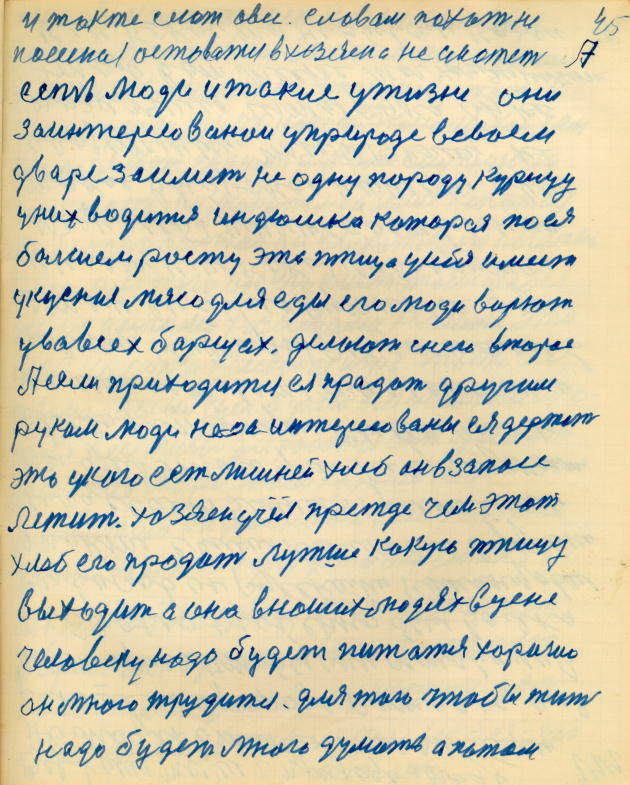 45
и также скот овец. словам похот не
посення оставати в хозяена не сможет А
сеть люди и такие у жизне они
заинтересованои у природе всвоем
дваре заимет не одну породу курицу
у них водится индюшка которая пося
болшем росту эта птица у себя имеет
укусныя мясо для еды его люди варют
у вавсех баршах. делают снего второе
А если приходится ея прадат другим
рукам люди на интересованы ея держат
эть укого сет лишней хлеб он взапасе
летит. хозяен учёл прежде чем этот
хлеб его продат лутше какую птицу
выходит а она внаших людях вцене
человеку надо будет питатся харашо
он много трудится. для таго чтобы жит
надо будет много думать а потом